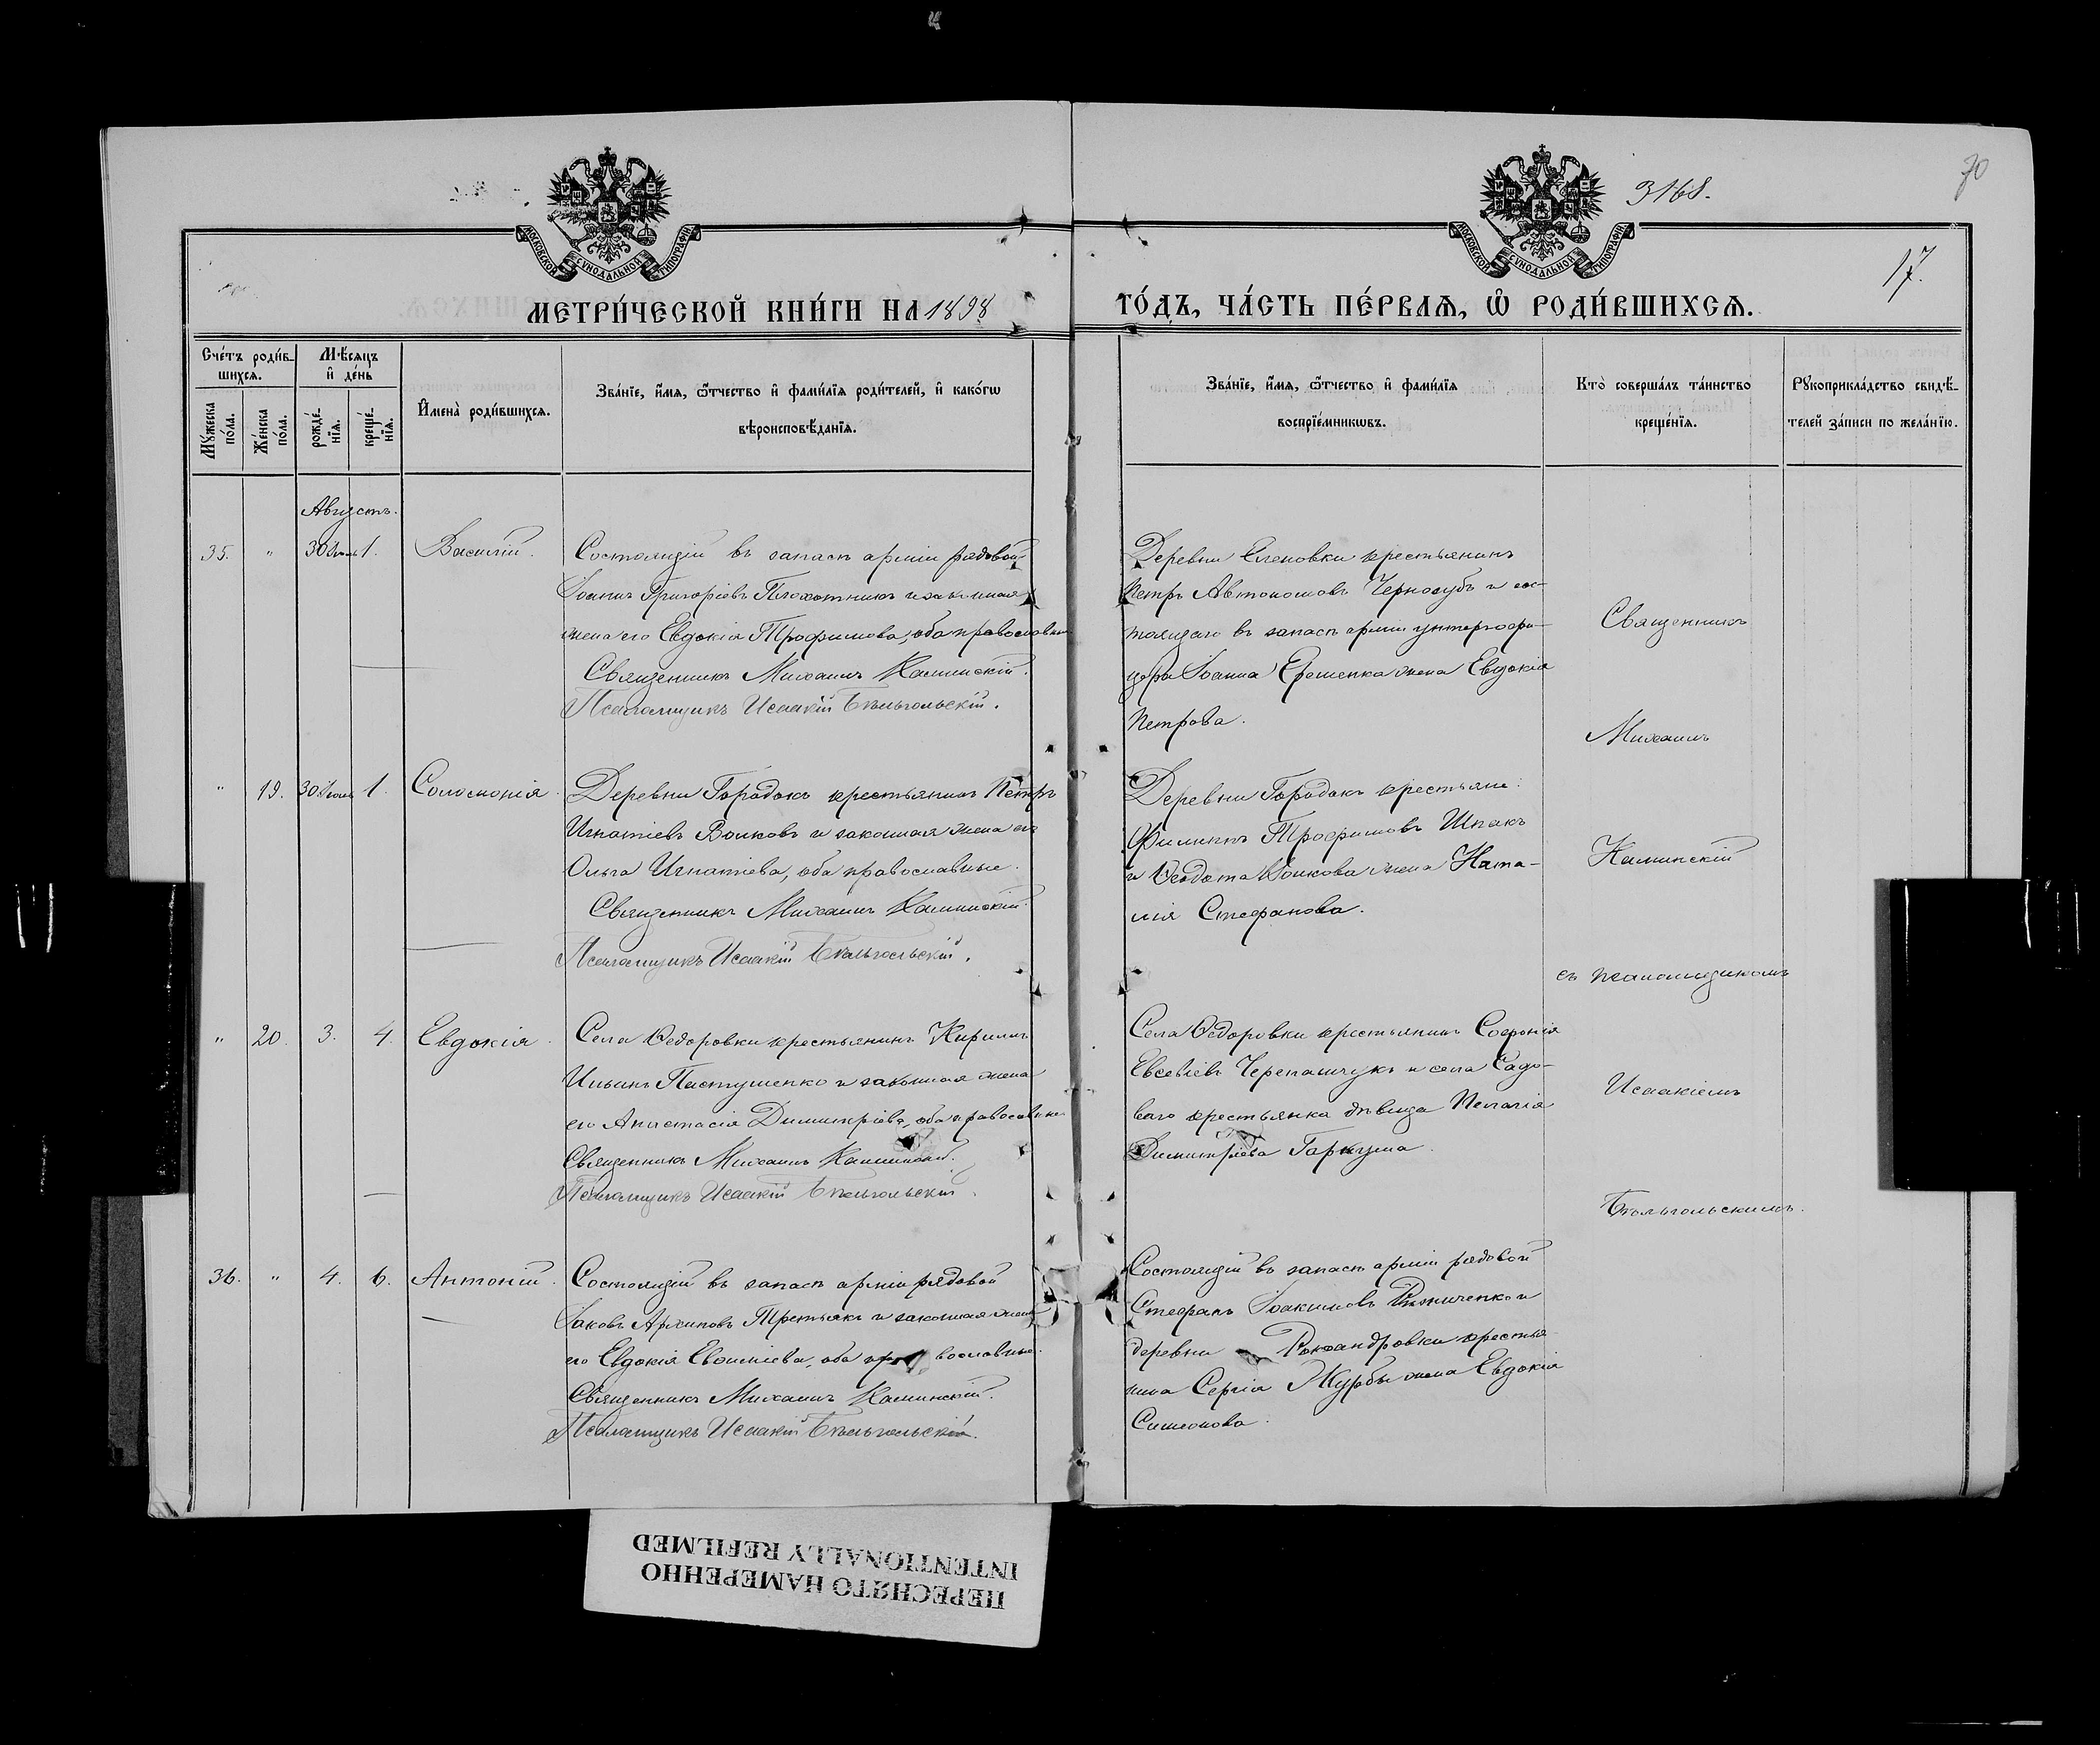 3168.
70
17.
МОСКОВСКОЙ СѴНОДАЛЬНОЙ ТИПОГРАФІИ
МОСКОВСКОЙ СѴНОДАЛЬНОЙ ТИПОГРАФІИ
МЕТРИ́ЧЕСКОЙ КНИ́ГИ НА 1898 ГО́ДЪ, ЧА́СТЬ ПЕ́РВАѦ, Ѿ РОДИ́ВШИХСѦ.
Сче́тъ роди́в-
шихся.
Мѣ́сяцъ
и҆ де́нь
Мꙋ́жеска
по́ла.
Же́нска
по́ла.
рожде́-
нїя.
креще́-
нїя.
И҆мена̀ роди́вшихся.
Зва́нїе, и҆́мя, ѻ҆́тчество и҆ фами́лїя роди́телей, и҆ како́гѡ
вѣроисповѣ́данїя.
Зва́нїе, и҆́мя, ѻ҆́тчество и҆ фами́лїя
воспрїе́мникѡвъ.
Кто̀ соверша́лъ та́инство
креще́нїя.
Рꙋкоприкла́дство свидѣ́-
телей за́писи по жела́нїю.
Августъ.
35. " 30 Іюль 1. Василій.
Состоящій въ запасѣ арміи рядовой
Іоаннъ Григоріевъ Плохотникъ и законная
жена его Евдокія Трофимова, оба православные
Священникъ Михаилъ Калинскій.
Псаломщикъ Исаакій Бѣльгольскій.
Деревни Еленовки крестьянинъ
Петръ Автономовъ Чернозубъ и сос-
тоящаго въ запасѣ арміи унтеръ-офи-
цера Іоанна Ерешенка жена Евдокія
Петрова.
" 19. 30 Іюль 1. Соломонія.
Деревни Городокъ крестьянинъ Петръ
Игнатіевъ Волковъ и законная жена его
Ольга Игнатіева, оба православные.
Священникъ Михаилъ Калинскій.
Псаломщикъ Исаакій Бѣльгольскій.
Деревни Городокъ крестьяне:
Филиппъ Трофимовъ Шпакъ
и Ѳеодота Волкова жена Ната-
лія Стефанова.
" 20. 3. 4. Евдокія.
Села Ѳедоровки крестьянинъ Кириллъ
Ильинъ Пастушенко и законная жена
его Анастасія Димитріева, оба православные
Священникъ Михаилъ Калинскій.
Псаломщикъ Исаакій Бѣльгольскій.
Села Ѳедоровки крестьянинъ Софроній
Евсевіевъ Черепащукъ и села Садо-
ваго крестьянка дѣвица Пелагія
Димитріева Гаркуша.
36. " 4. 6. Антоній.
Состоящій въ запасѣ арміи рядовой
Іаковъ Архиповъ Третьякъ и законная жена
его Евдокія оба православные.
Священникъ Михаилъ Калинскій.
Псаломщикъ Исаакій Бѣльгольскій.
Состоящій въ запасѣ арміи рядовой
Стефанъ Іоакимовъ и
деревни Роксандровки крестья-
нина Сергія Журбы жена Евдокія
Симеонова.
Священникъ
Михаилъ
Калинскій
съ псаломщикомъ
Исаакіемъ
Бѣльгольскимъ.
ПЕРЕСНЯТО НАМЕРЕННО
INTENTIONALLY REFILMED